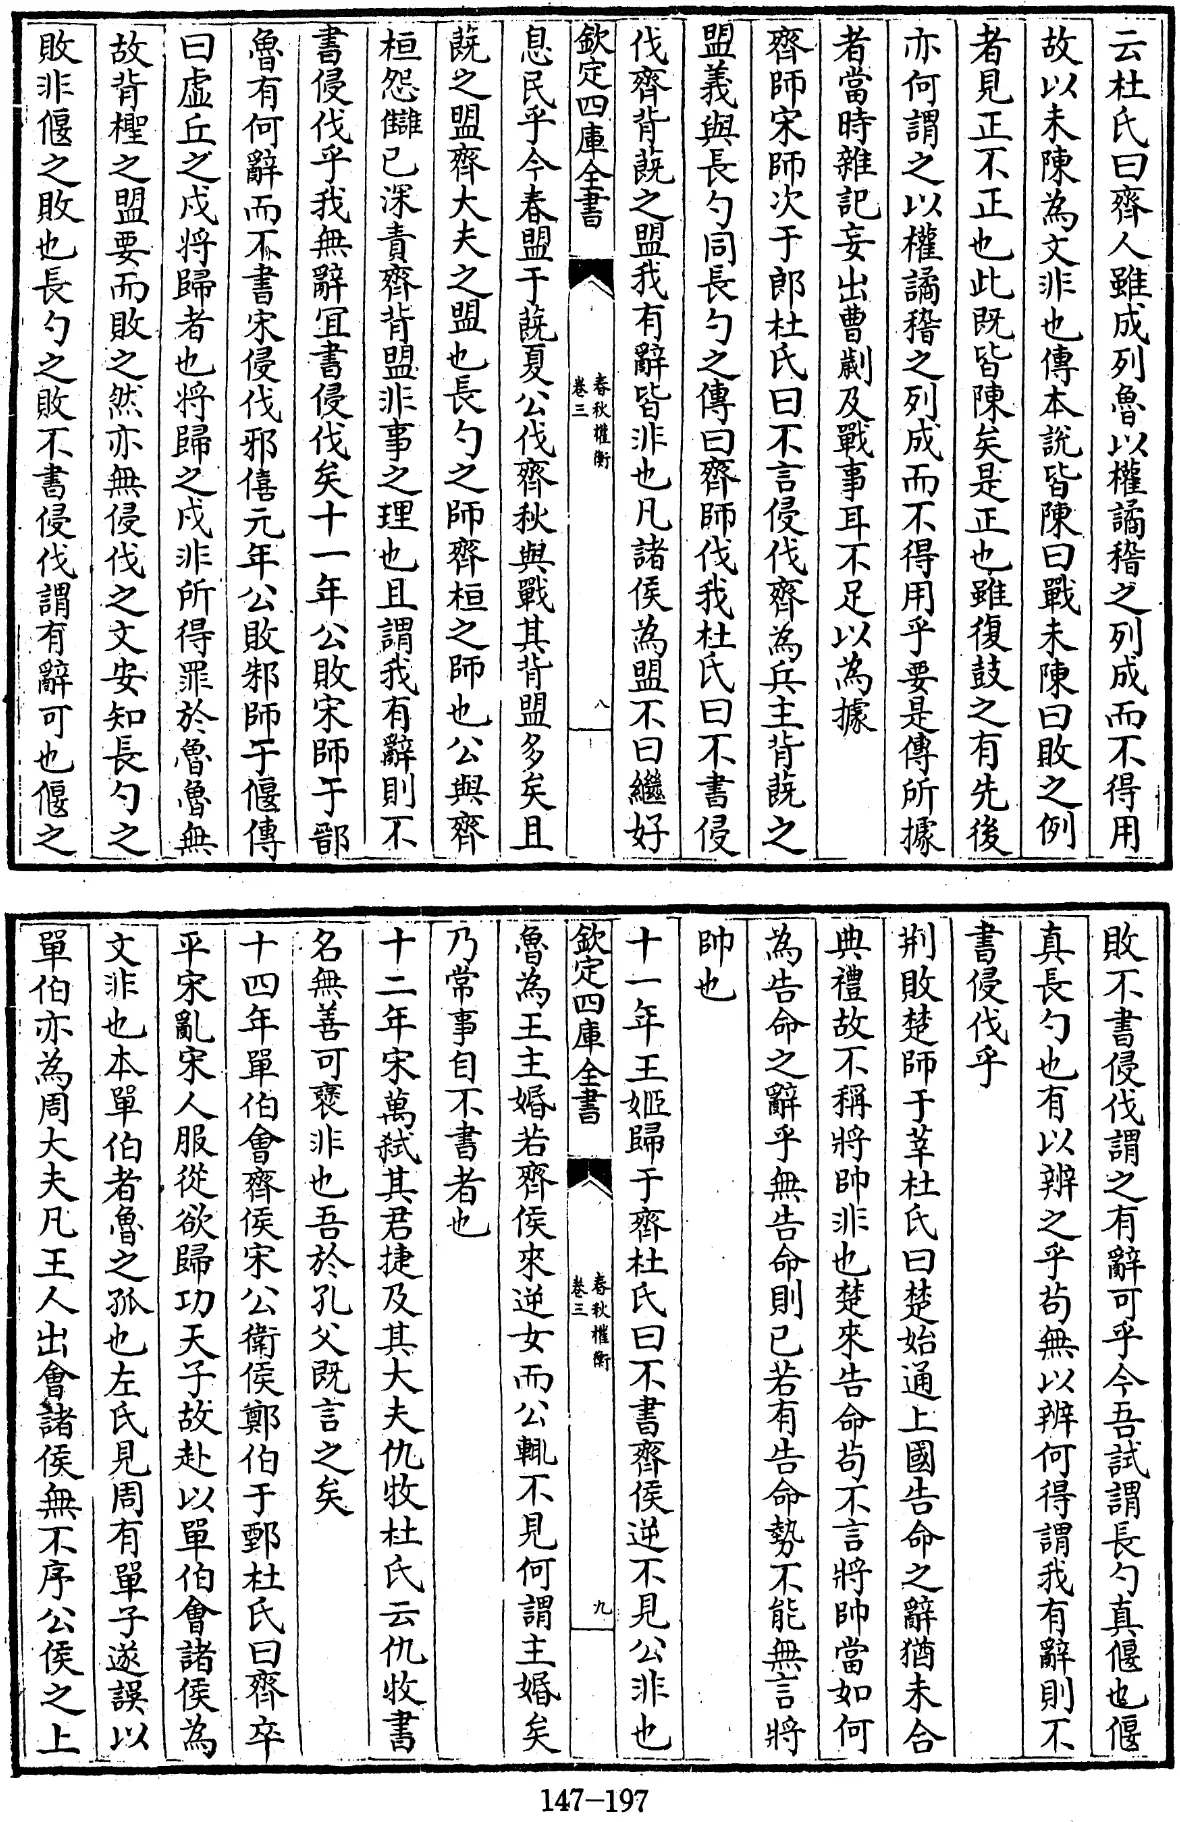 云杜氏曰齊人雖成列魯以權譎稽之列成而不得用
故以未陳為文非也傳本說皆陳曰戰未陳曰敗之例
者見正不正也此既皆陳矣是正也雖復鼓之有先後
亦何謂之以權譎稽之列成而不得用乎要是傳所據
者當時雜記妄出曹劌及戰事耳不足以為據
齊師宋師次于郎杜氏曰不言侵伐齊為兵主背蔇之
盟義與長勺同長勺之傳曰齊師伐我杜氏曰不書侵
伐齊背蔇之盟我有辭皆非也凡諸侯為盟不曰繼好
欽定四庫全書
春秋權衡
卷三
八
息民乎今春盟于蔇夏公伐齊秋與戰其背盟多矣且
蔇之盟齊大夫之盟也長勺之師齊桓之師也公與齊
桓怨讎已深責齊背盟非事之理也且謂我有辭則不
書侵伐乎我無辭宜書侵伐矣十一年公敗宋師于鄑
魯有何辭而不書宋侵伐邪僖元年公敗邾師于偃傳
曰虛丘之戍將歸者也將歸之戍非所得罪於魯魯無
故背檉之盟要而敗之然亦無侵伐之文安知長勺之
敗非偃之敗也長勺之敗不書侵伐謂有辭可也偃之
敗不書侵伐謂之有辭可乎今吾試謂長勺真偃也偃
真長勺也有以辨之乎苟無以辨何得謂我有辭則不
書侵伐乎
荆敗楚師于莘杜氏曰楚始通上國告命之辭猶未合
典禮故不稱將帥非也楚來告命苟不言將帥當如何
為告命之辭乎無告命則已若有告命勢不能無言將
帥也
十一年王姬歸于齊杜氏曰不書齊侯逆不見公非也
欽定四庫全書
春秋權衡
卷三
九
魯為王主婚若齊侯來逆女而公輒不見何謂主婚矣
乃常事自不書者也
十二年宋萬弑其君捷及其大夫仇牧杜氏云仇牧書
名無善可襃非也吾於孔父既言之矣
十四年單伯會齊侯宋公衛侯鄭伯于鄄杜氏曰齊卒
平宋亂宋人服從欲歸功天子故赴以單伯會諸侯為
文非也本單伯者魯之孤也左氏見周有單子遂誤以
單伯亦為周大夫凡王人出會諸侯無不序公侯之上
147-197